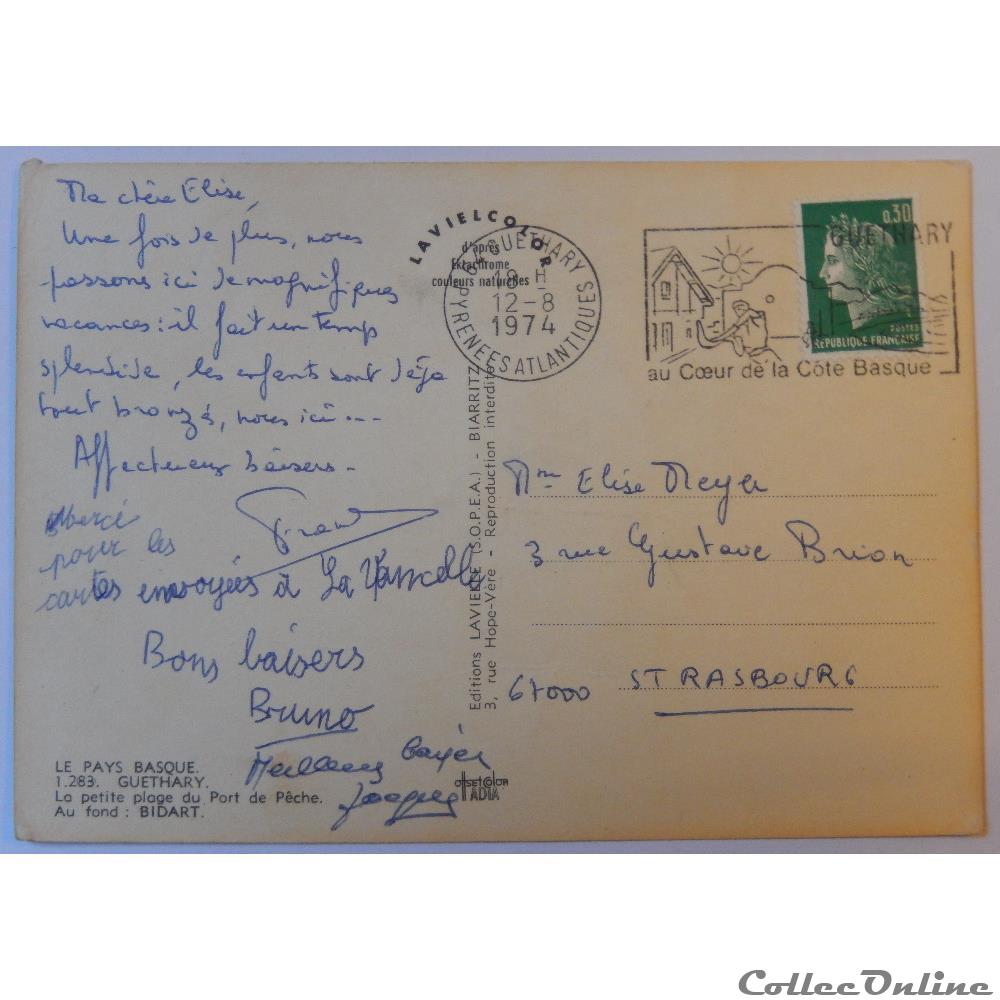 Ma chère Elise,
Une fois de plus, nous
passons ici de magnifiques
vacances : il fait un temps
splendide, les enfants sont déjà
tout bronzés, nous ici ...
Affectueux baisers -
Merci
pour les
cartes envoyées à La Vancelle
Bons baisers
Bruno
Meilleurs baisers
Jacques
LE PAYS BASQUE.
1.283. GUETHARY.
La petite plage du Port de Pêche.
Au fond : BIDART.
LAVIELCOLOR
d'après
Ektachrome
couleurs naturelles
GUETHARY
18 H
12-8
1974
PYRENEES ATLANTIQUES
Editions LAVIELLE (S.O.P.E.A.) - BIARRITZ
3, rue Hope-Vère - Reproduction interdite
offsetcolor
IADIA
0,30
POSTES
REPUBLIQUE FRANCAISE
GUETHARY
au Cœur de la Côte Basque
Mme Elise Meyer
3 rue Gustave Brion
67000 STRASBOURG
CollecOnline